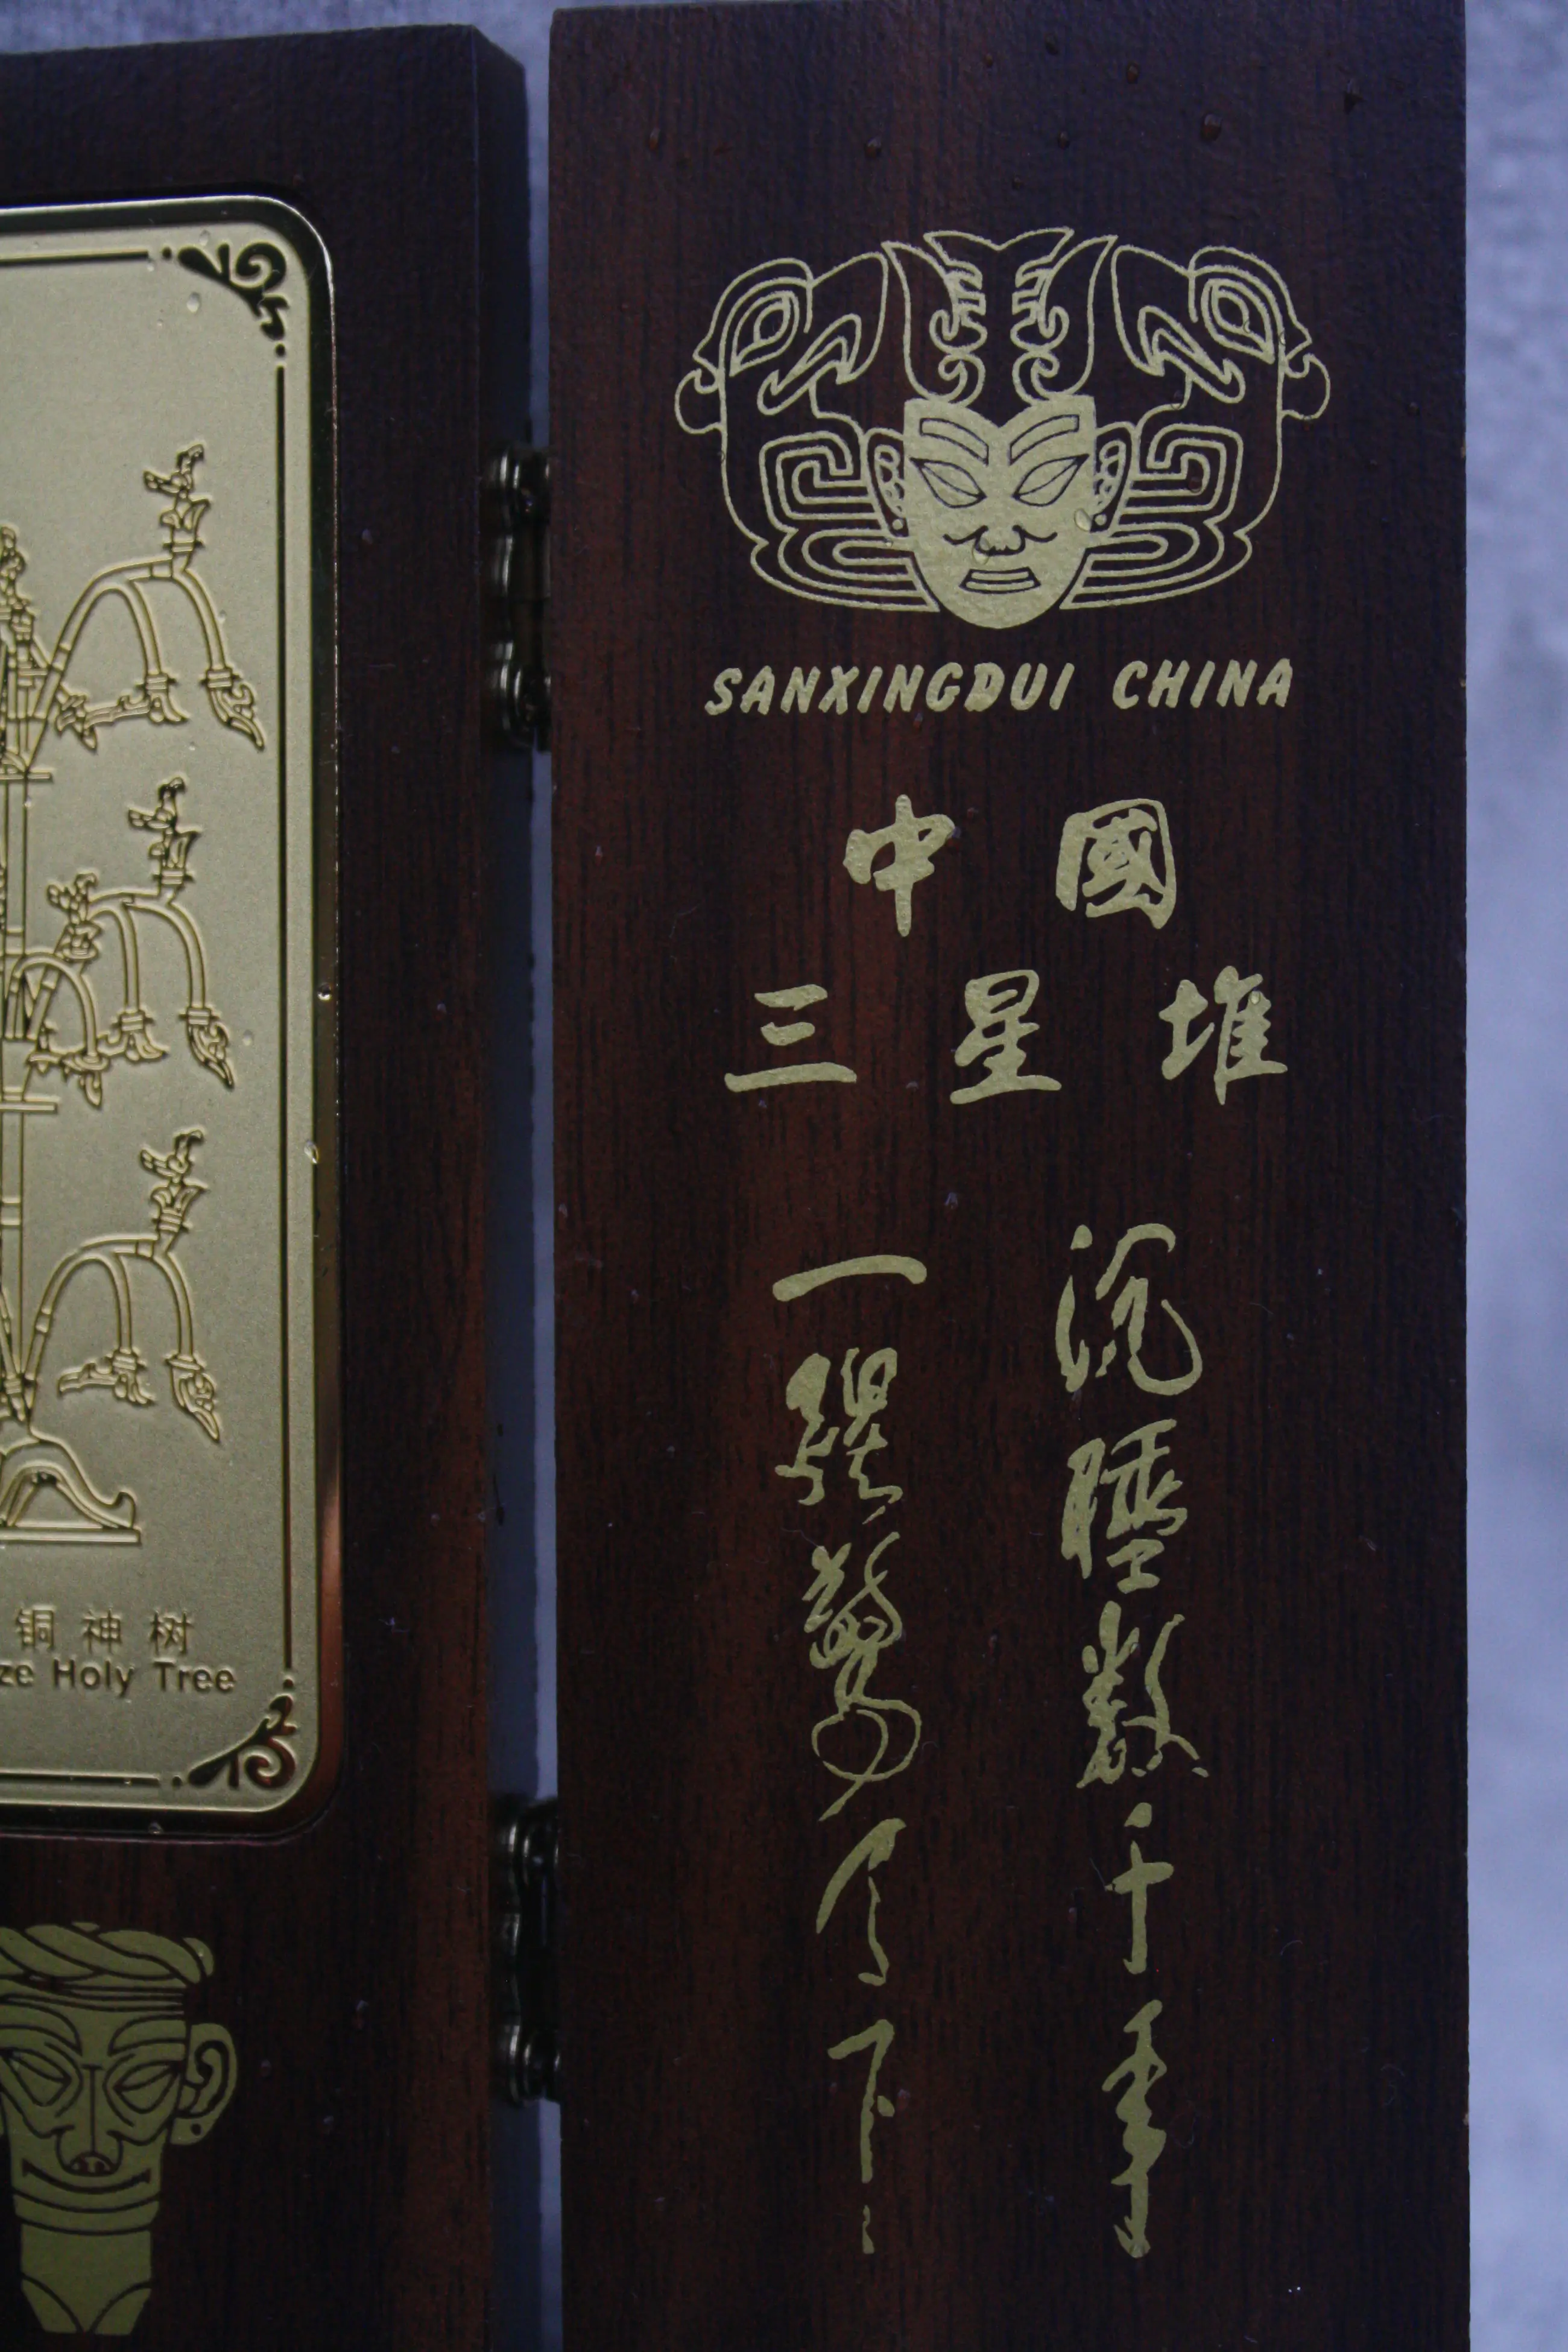 SANXINGDUI CHINA
中國
三星堆
沉睡數千年
一醒驚天下
铜神树
ze Holy Tree